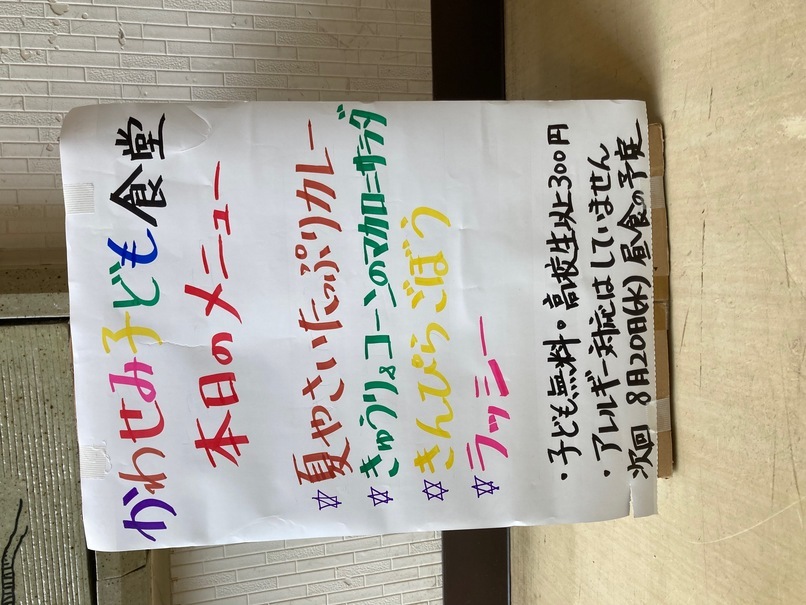 かわせみ子ども食堂
本日のメニュー
✡夏やさいたっぷりカレー
✡きゅうり&コーンのマカロニサラダ
✡きんぴらごぼう
✡ラッシー
・子ども無料。高校生以上300円
・アレルギー対応はしていません
次回 8月20日(水)昼食の予定